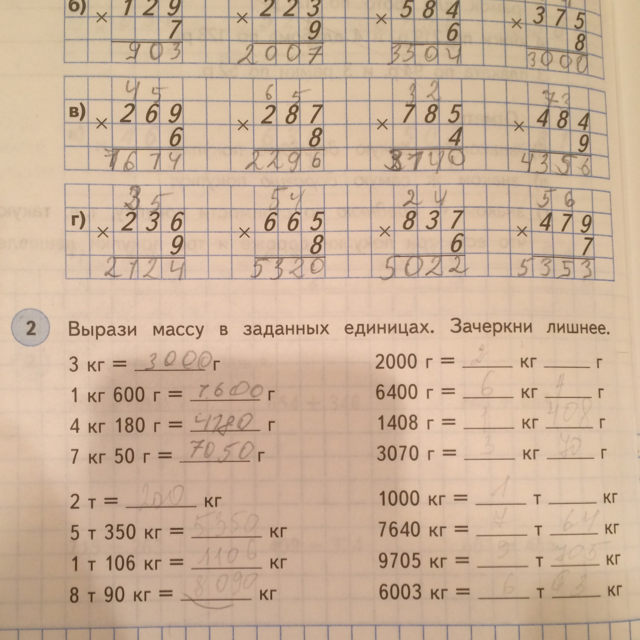 б) × 129 × 223 × 584 × 375
7 9 6 8
903 2007 3504 3000
45 65 32 73
в) × 269 × 287 × 785 × 484
6 8 4 9
1614 2296 3140 4356
35 54 24 56
г) × 236 × 665 × 837 × 479
9 8 6 7
2124 5320 5022 5353
2 Вырази массу в заданных единицах. Зачеркни лишнее.
3 кг = 3000 г 2000 г = 2 кг ___ г
1 кг 600 г = 1600 г 6400 г = 6 кг ___ г
4 кг 180 г = 4180 г 1408 г = 1 кг 408 г
7 кг 50 г = 7050 г 3070 г = 3 кг 70 г
2 т = ___ кг 1000 кг = 1 т ___ кг
5 т 350 кг = 5350 кг 7640 кг = 7 т ___ кг
1 т 106 кг = 1106 кг 9705 кг = 9 т 705 кг
8 т 90 кг = 8090 кг 6003 кг = 6 т ___ кг